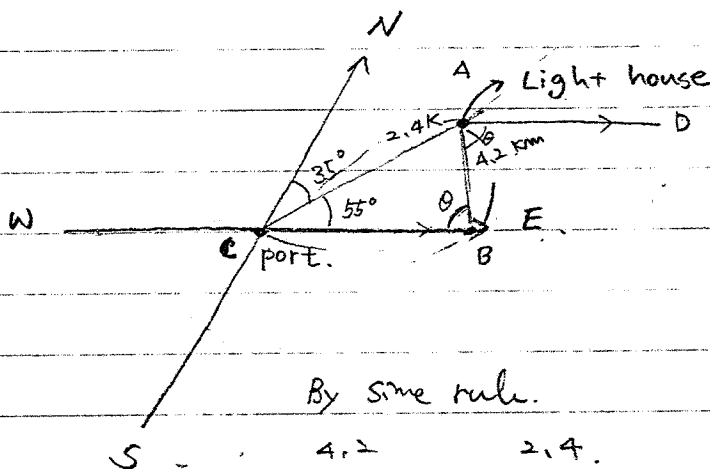 N
A
Light house
2.4K
D
θ
4.2 km
35°
55°
θ
W
C
port.
B
E
By sine rule.
S
4.2
2.4.